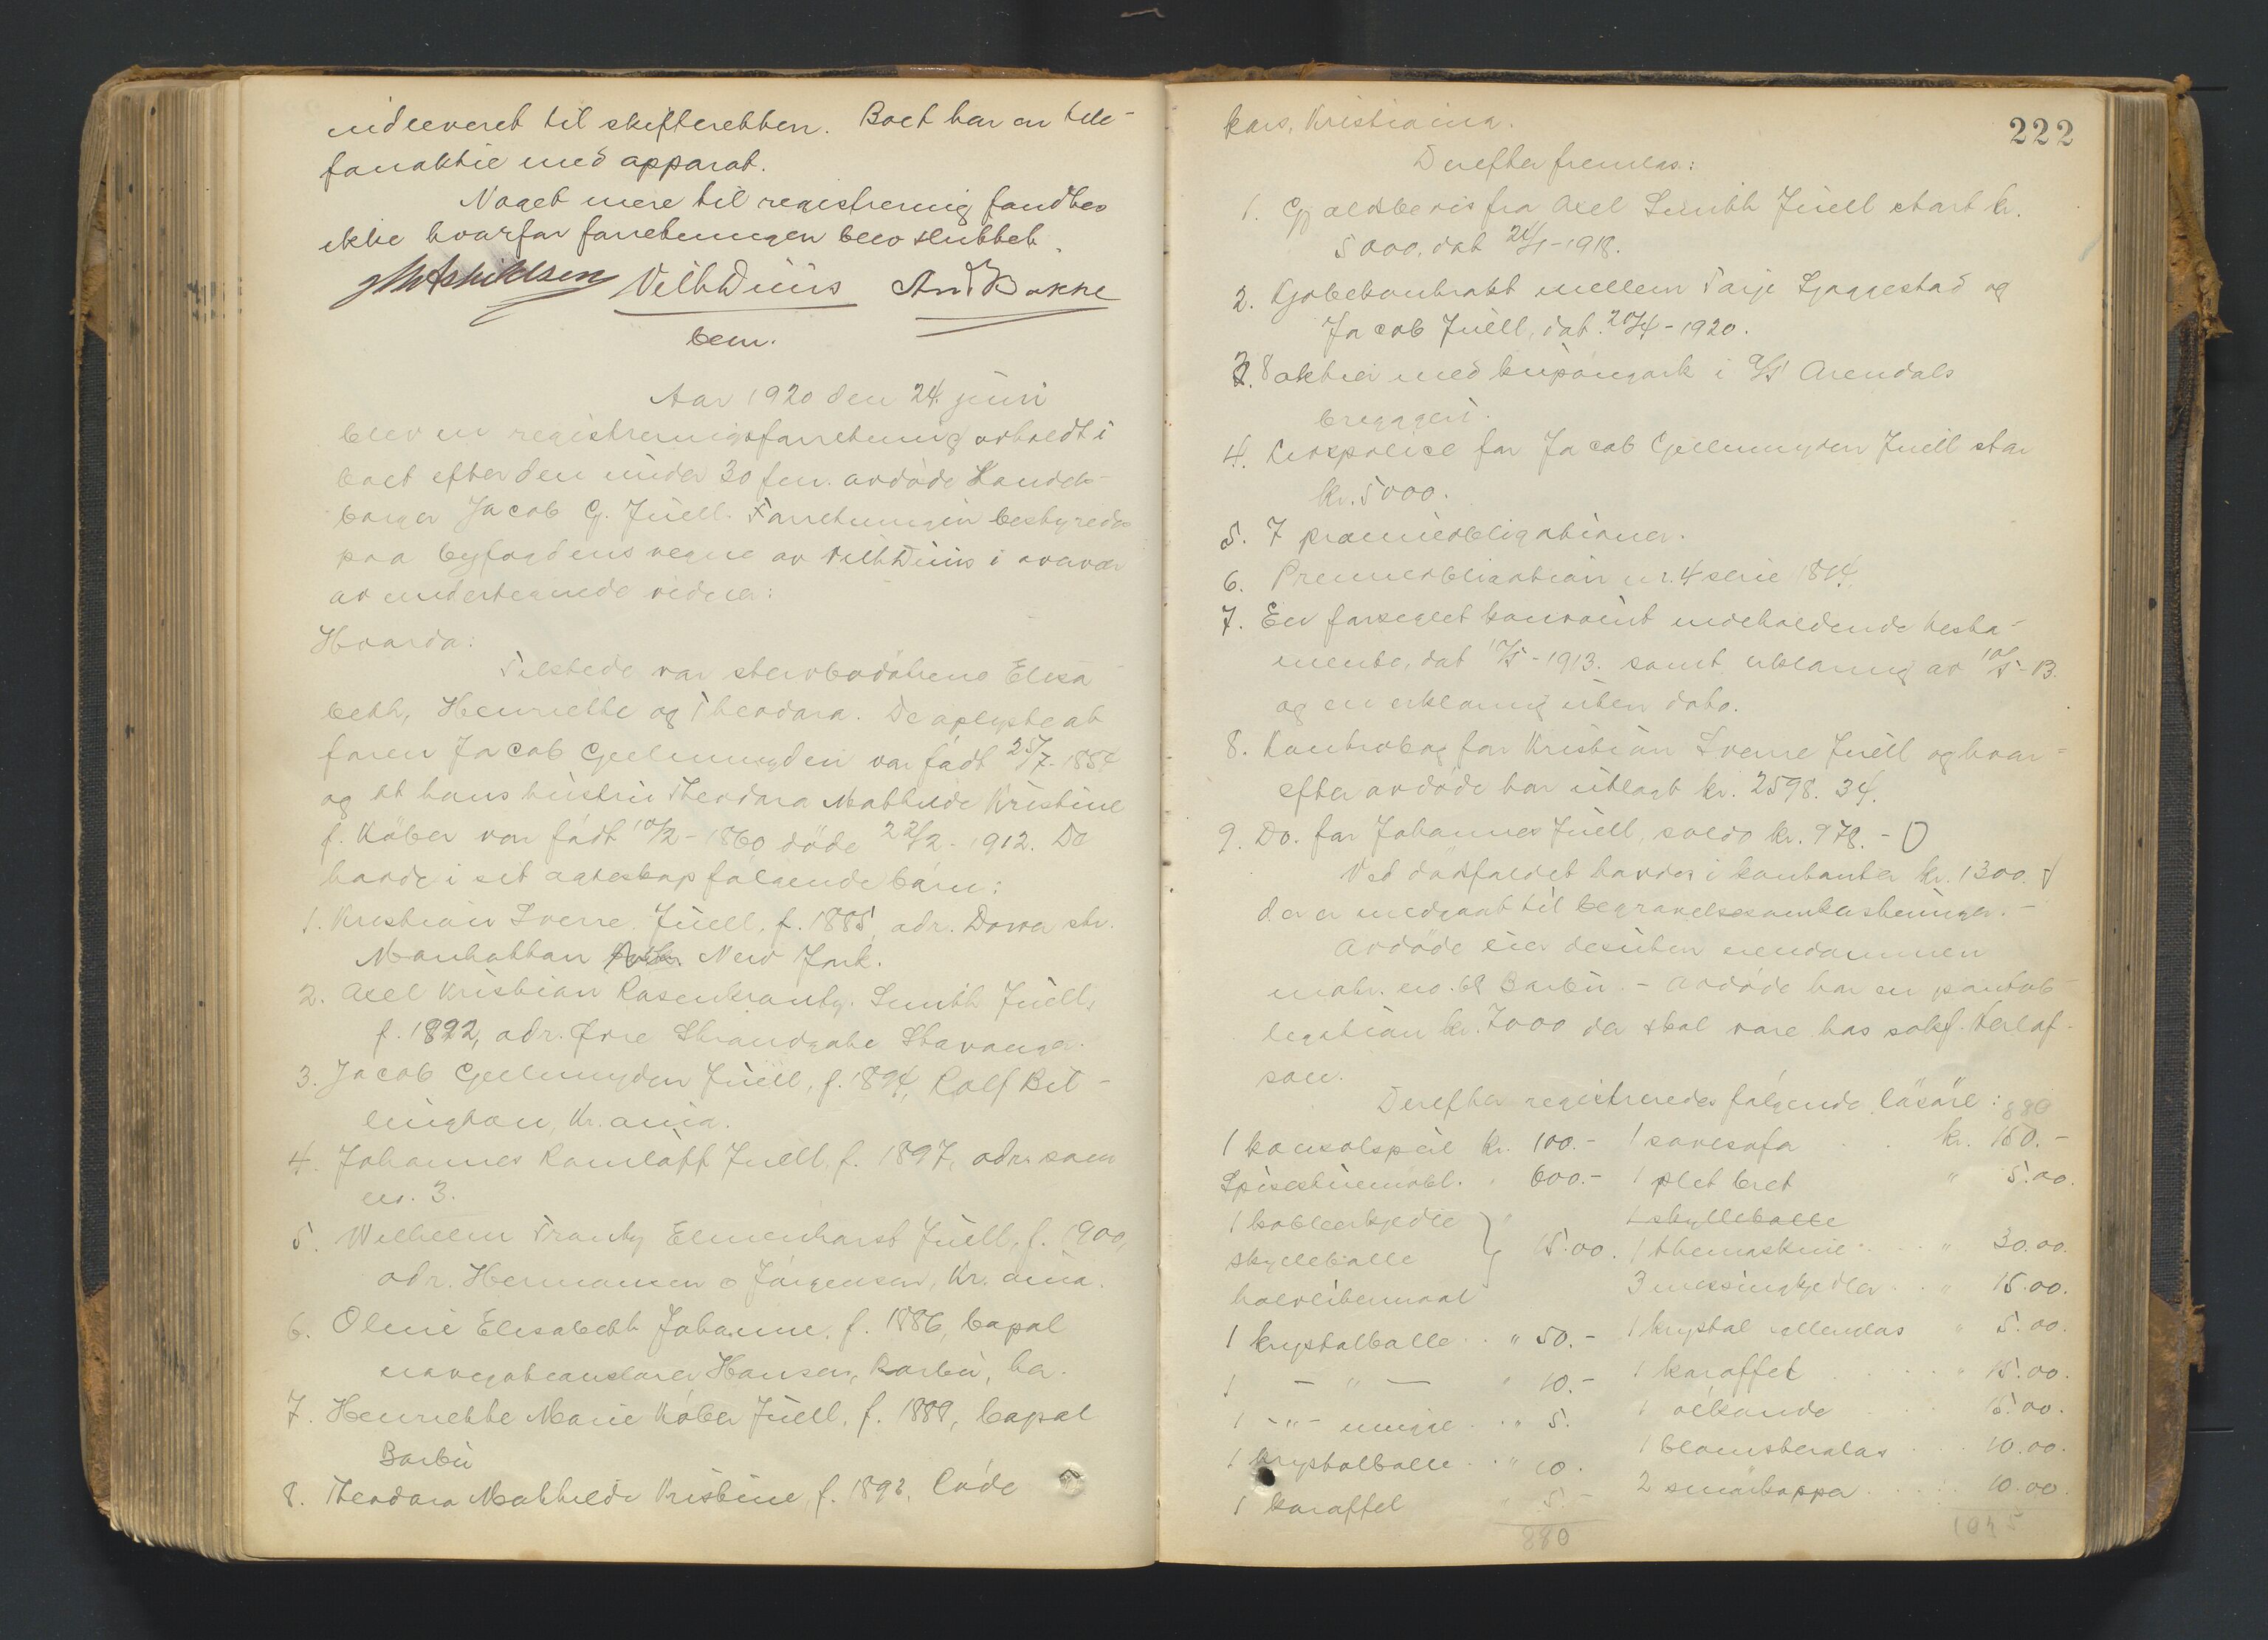 indleveret til skifteretten. Boet har en tele-
fonaktie med apparat.
Noget mere til registrering fandtes
ikke hvorfor forretningen blev sluttet.
VilhDuus And Bakke
bem.
Aar 1920 den 24. juni
blev en registreringsforretning avholdt i
boet efter den under 30 f.m. avdøde Handels-
borger Jacob G. Juell. Forretningen bestyredes
paa byfogdens vegne av VilhDuus i overvær
av undertegnede vidner:
Hvorda:
Tilstede var stervbodøtrene Elisa-
beth, Henriette og Theodora. De oplyste at
faren Jacob Gjelmuyden var født 25/7-1854
og at hans hustru Theodora Mathilde Kristine
f. Køber var født 10/2-1860 døde 22/2-1912. De
havde i sit egteskap følgende børn:
1. Kristian Sverre Juell, f. 1885, adr. Dover str.
Manhattan New York.
2. Axel Kristian Rosenkrantz Smith Juell,
f. 1892, adr. Øvre Strandgate Stavanger.
3. Jacob Gjelmuyden Juell, f. 1894, Rolf Bil-
lington, Kr.ania.
4. Johannes Ramløff Juell, f. 1897, adr. som
no. 3.
5. Wilhelm Frantz Elmenhorst Juell, f. 1900,
adr. Hermansen & Jørgensen, Kr.ania.
6. Oline Elisabeth Johanne, f. 1886, bopæl
Hansen, Barbu, her.
7. Henriette Marie Køber Juell, f. 1888, bopæl
Barbu
8. Theodora Mathilde Kristine, f. 1892, Lode
222
kors, Kristiania.
Derefter fremlas:
1. Gjældsbevis fra Axel Smith Juell stort kr.
5000, dat 24/1-1918.
2. Kjøbekontrakt mellem Tarje Sjaggestad og
Jacob Juell, dat. 20/4-1920.
3. 8 aktier med kupongark i a/s Arendals
bryggeri.
4. Livspolice for Jacob Gjelmuyden Juell stor
kr. 5000.
5. 7 præmieobligationer.
6. Premieobligation nr. 4 serie 1814.
7. En forseglet konvolut indeholdende testa-
mente, dat 10/5-1913. samt erklæring av 10/5-13.
og en erklæring uten dato.
8. Kontrabog for Kristian Sverre Juell og hvor-
efter avdøde har utlagt kr. 2598.34.
9. Do. for Johannes Juell, saldo kr. 978.-
Ved dødsfaldet havdes i kontanter kr. 1300.
der er medgaat til begravelsesomkostninger.-
Avdøde eier desuten eiendommen
matr. no. 68 Barbu.- Avdøde har en pantob-
ligation kr. 7000 der skal være hos sakf. Herlof-
son.
Derefter registreredes følgende løsøre: 880
1 konsolspeil kr. 100.- 1 sovesofa kr. 150.-
Spisestuemøbl. " 600.- 1 plet bret " 5.00.
1 kobberkjedle 1 skylleballe
skylleballe 15.00. 1 themaskine " 30.00.
halvlitermaal 3 messingkjedler " 15.00.
1 krystalballe " 50.- 1 krystal " 5.00.
1 - " - " 10.- 1 karaffel " 15.00.
1 -"- mugge " 5. 1 ølkande 15.00.
1 krystalballe " 10. 1 blomsterglas 10.00.
1 karaffel " 5.- 2 smørkopper 10.00.
880 1045